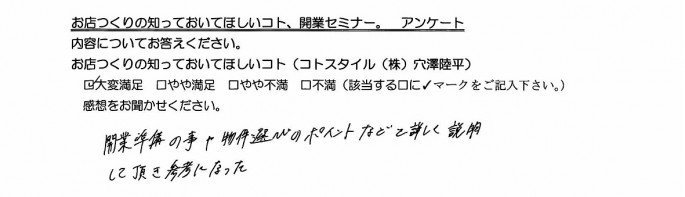 お店つくりの知っておいてほしいコト、開業セミナー。　アンケート
内容についてお答えください。
お店つくりの知っておいてほしいコト（コトスタイル（株）穴澤陸平）
☑大変満足　□やや満足　□やや不満　□不満（該当する□に✓マークをご記入下さい。）
感想をお聞かせください。
開業準備の事や物件選びのポイントなど詳しく説明
して頂き参考になった